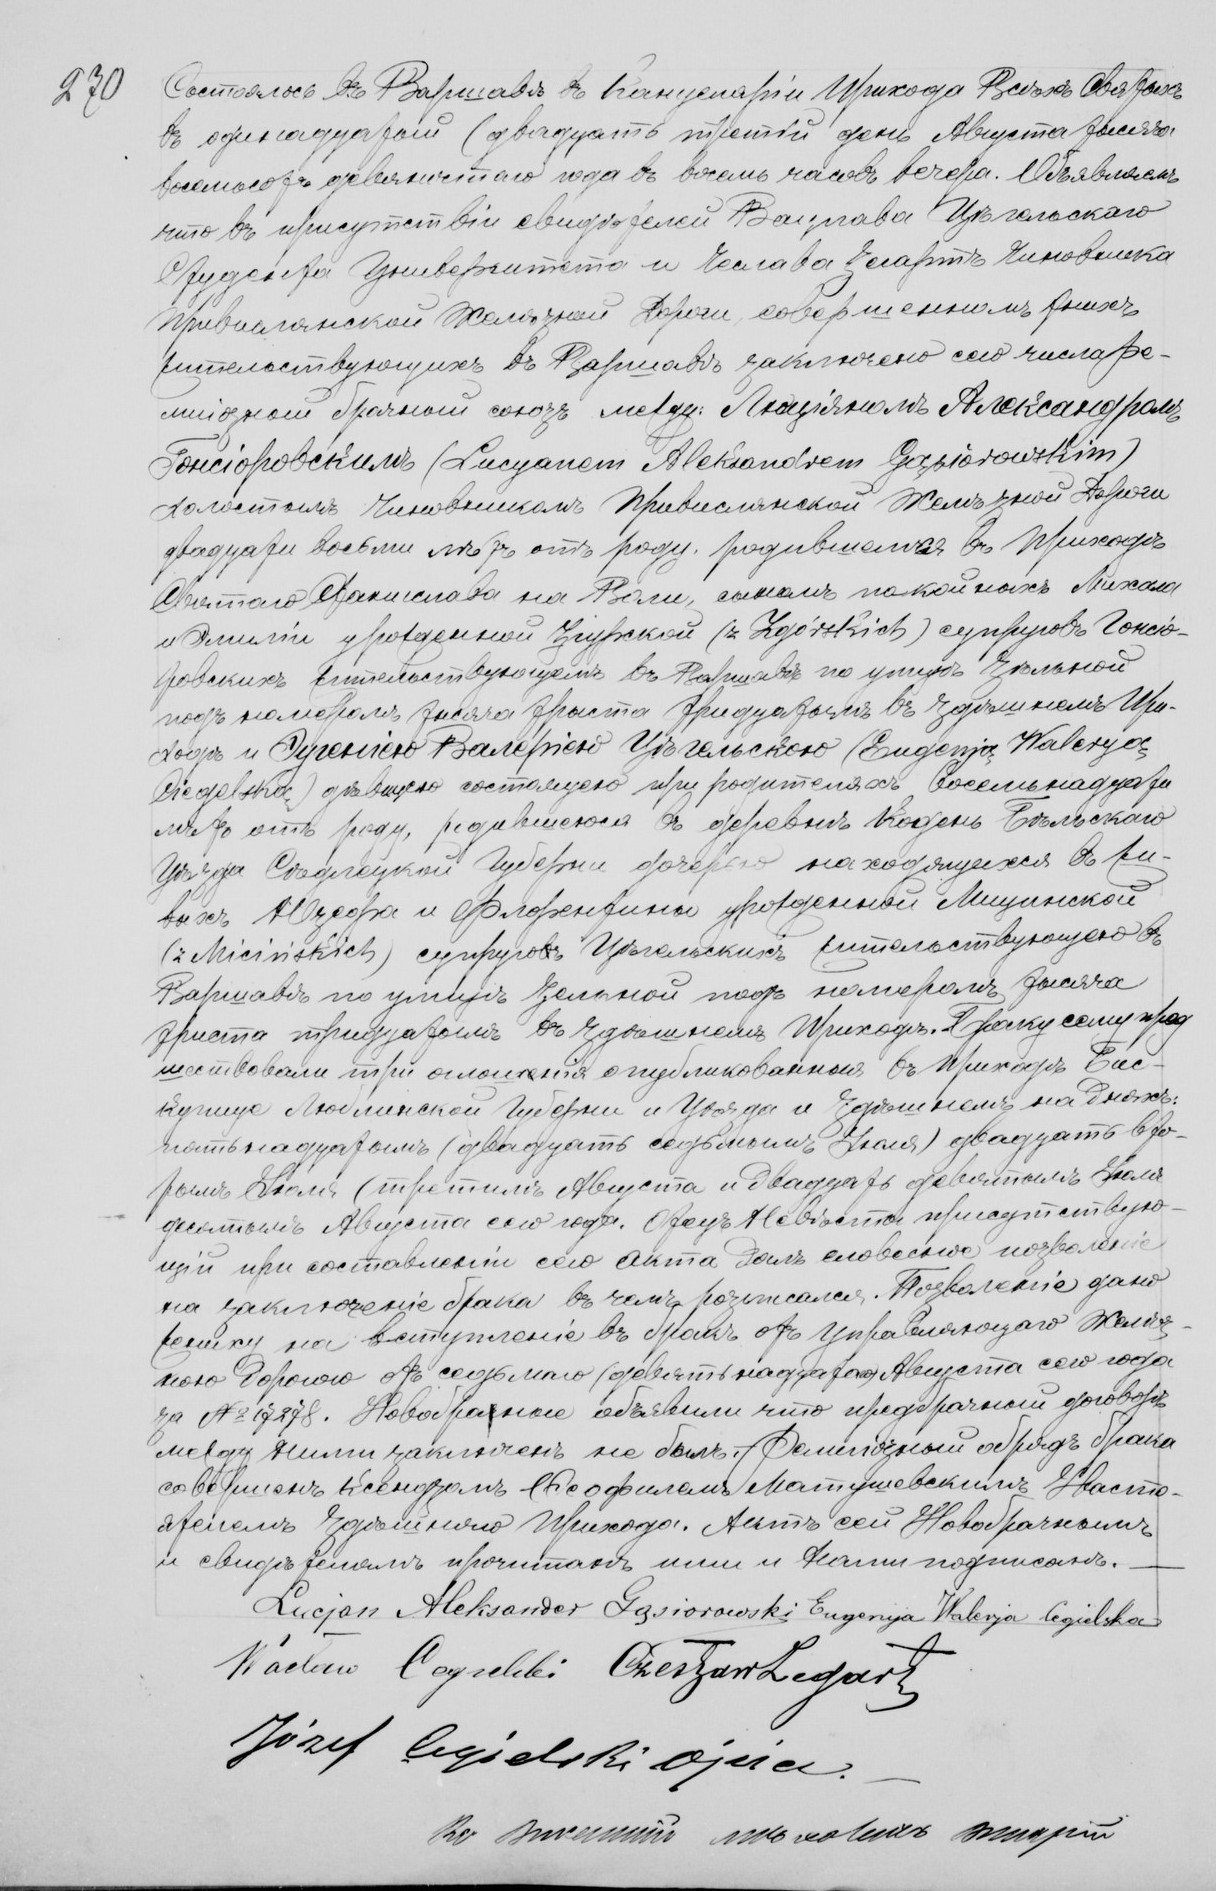 270
Состоялось въ Варшавѣ въ Канцеляріи Прихода Всѣхъ Святыхъ
въ одинадцатый (двадцать третій день Августа тысяча
восемьсотъ девяностаго года въ восемь часовъ вечера. Объявляемъ
что въ присутствіи свидѣтелей Вацлава Цѣгельскаго
Студента Университета и Чеслава Чиновника
Привислянской Желѣзной Дороги, совершеннолѣтнихъ
жительствующихъ въ Варшавѣ заключено сего числа ре-
лигіозный брачный союзъ между: Люціяномъ Александромъ
Гонсіоровскимъ (Lucyanem Aleksandrem Gąsiorowskim)
холостымъ Чиновникомъ Привислянской Желѣзной Дороги
двадцати восьми лѣтъ отъ роду, родившемся въ Приходѣ
Святаго Станислава на Воли, сыномъ покойныхъ Михала
и Эмиліи урожденной Згурской (z Zgórskich) супруговъ Гонсіо-
ровскихъ жительствующемъ въ Варшавѣ по улицѣ
подъ номеромъ тысяча триста тридцатымъ въ здѣшнемъ При-
ходѣ и Эугеніею Валеріею Цѣгельскою (Eugenją Waleryą
Ciegelską) дѣвицею состоящею при родителяхъ восемьнадцати
лѣтъ отъ роду, родившеюся въ деревнѣ Кодень Бѣльскаго
Уѣзда Сѣдлецкой Губерніи дочерью находящихся въ жи-
выхъ Юзефа и Флорентины урожденной Мицинской
(z Micińskich) супруговъ Цѣгельскихъ жительствующею въ
Варшавѣ по улицѣ подъ номеромъ тысяча
триста тридцатымъ въ здѣшнемъ Приходѣ. Браку сему пред
шествовали три оглашенія опубликованныя въ Приходѣ Бис-
купице Люблинской Губерніи и Уѣзда и здѣшнемъ на дняхъ:
пятьнадцатымъ (двадцать седьмымъ Іюля) двадцать вто-
рымъ Іюля (третимъ Августа и двадцать девятымъ Іюля
десятымъ Августа сего года. Отецъ Невѣсты присутствую-
щій при составленіи сего Акта далъ словесное позволеніе
на заключеніе брака въ чемъ розписался. Позволеніе дано
жениху на вступленіе въ бракъ отъ Управляющаго Желѣз-
ною Дорогою отъ седьмаго (девятьнадцатаго) Августа сего года
за № 17278. Новобрачные объявили что предбрачный договоръ
между ними заключенъ не былъ. Религіозный обрядъ брака
совершенъ Ксендзомъ Ѳеофиломъ Матушевскимъ Насто-
ятелемъ здѣшняго Прихода. Актъ сей Новобрачнымъ
и свидѣтелямъ прочитанъ ими и Нами подписанъ.
Lucjan Aleksander Gąsiorowski Eugenija Walerja Cegielska
Wacław Cegielski Czesław
Józef Cegielski ojciec.